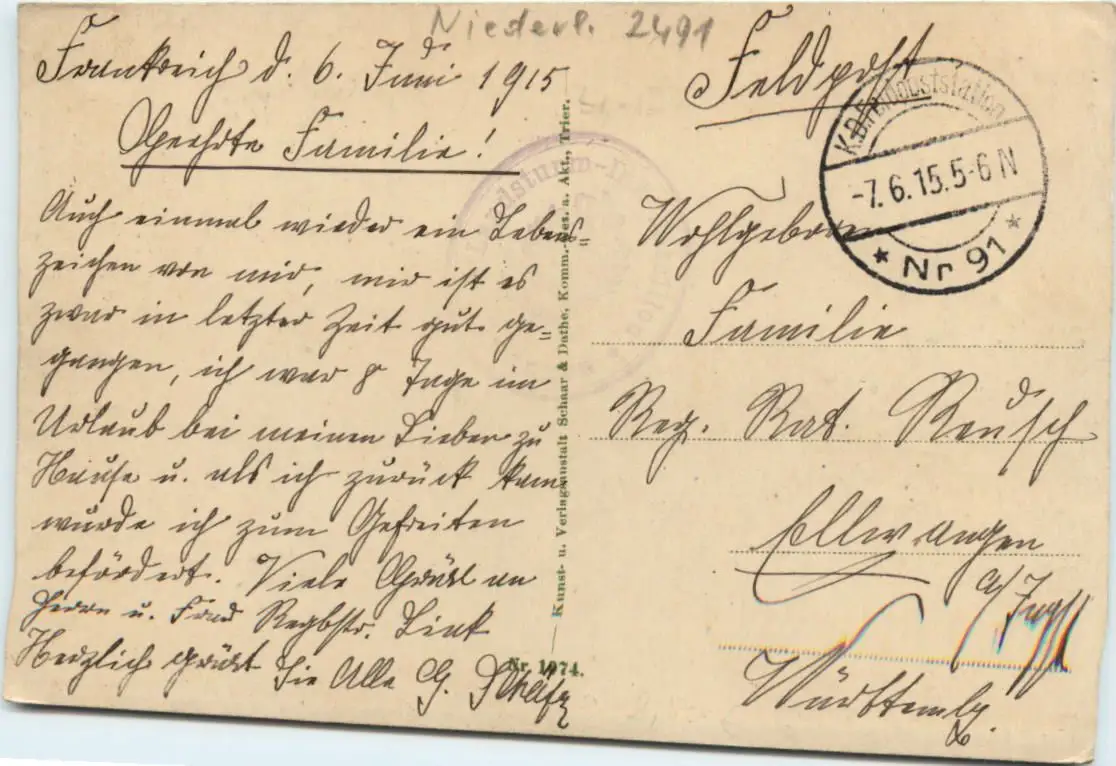 Niederl. 2491
Frankreich d. 6. Juni 1915
Geehrte Familie!
Auch einmal wieder ein Lebens=
zeichen von mir, mir ist es
zwar in letzter Zeit gut ge=
gangen, ich war 8 Tage im
Urlaub bei meinen Lieben zu
Hause u. als ich zurück kam
wurde ich zum Gefreiten
befördert. Viele Grüße an
Herrn u. Frau Link
Herzlich grüßt Sie Alle G.
Kunst- u. Verlagsanstalt Schaar & Dathe, Komm.-Ges. a. Akt., Trier.
Nr. 1974.
Landsturm-
Feldpost
K.B. Feldpoststation
-7.6.15.5-6 N
* Nr 91 *
Wohlgeboren
Familie
Reg. Rat. Reusch
Ellwangen
a/Jagst
Württembg.